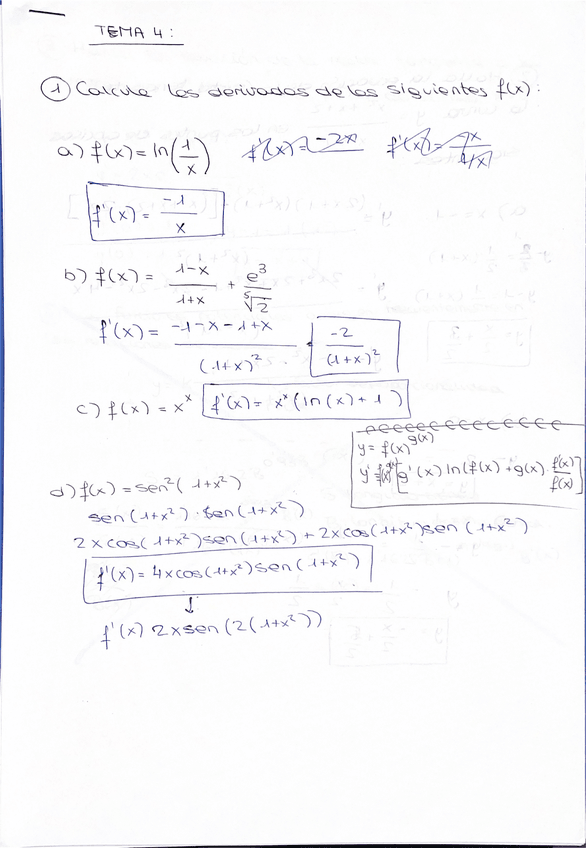 TEMA 4:
① Calcule las derivadas de las siguientes f(x):
a) f(x) = ln(1/x) f'(x) = -2x
f'(x) = -1/x
b) f(x) = (1-x)/(1+x) + e³/⁵√2
f'(x) = (-1-x-1+x)/(1+x)² = -2/(1+x)²
c) f(x) = xˣ f'(x) = xˣ(ln(x)+1)
y = f(x)^g(x)
y' = f(x)^g(x) [g'(x) ln(f(x) + g(x) · f'(x)/f(x)]
d) f(x) = sen²(1+x²)
sen(1+x²) · sen(1+x²)
2xcos(1+x²)sen(1+x²) + 2xcos(1+x²)sen(1+x²)
f'(x) = 4xcos(1+x²)sen(1+x²)
↓
f'(x) 2xsen(2(1+x²))